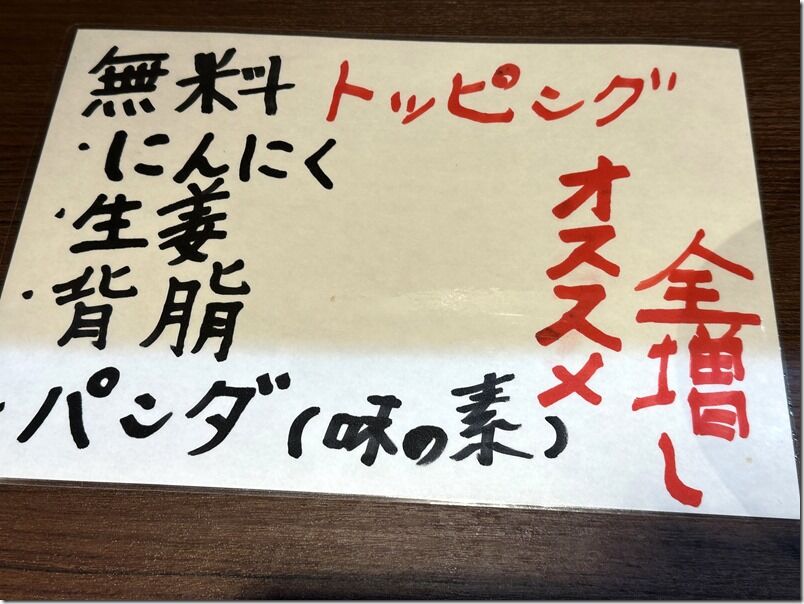 無料トッピング
・にんにく
・生姜
・背脂
・パンダ(味の素)
オススメ
全増し